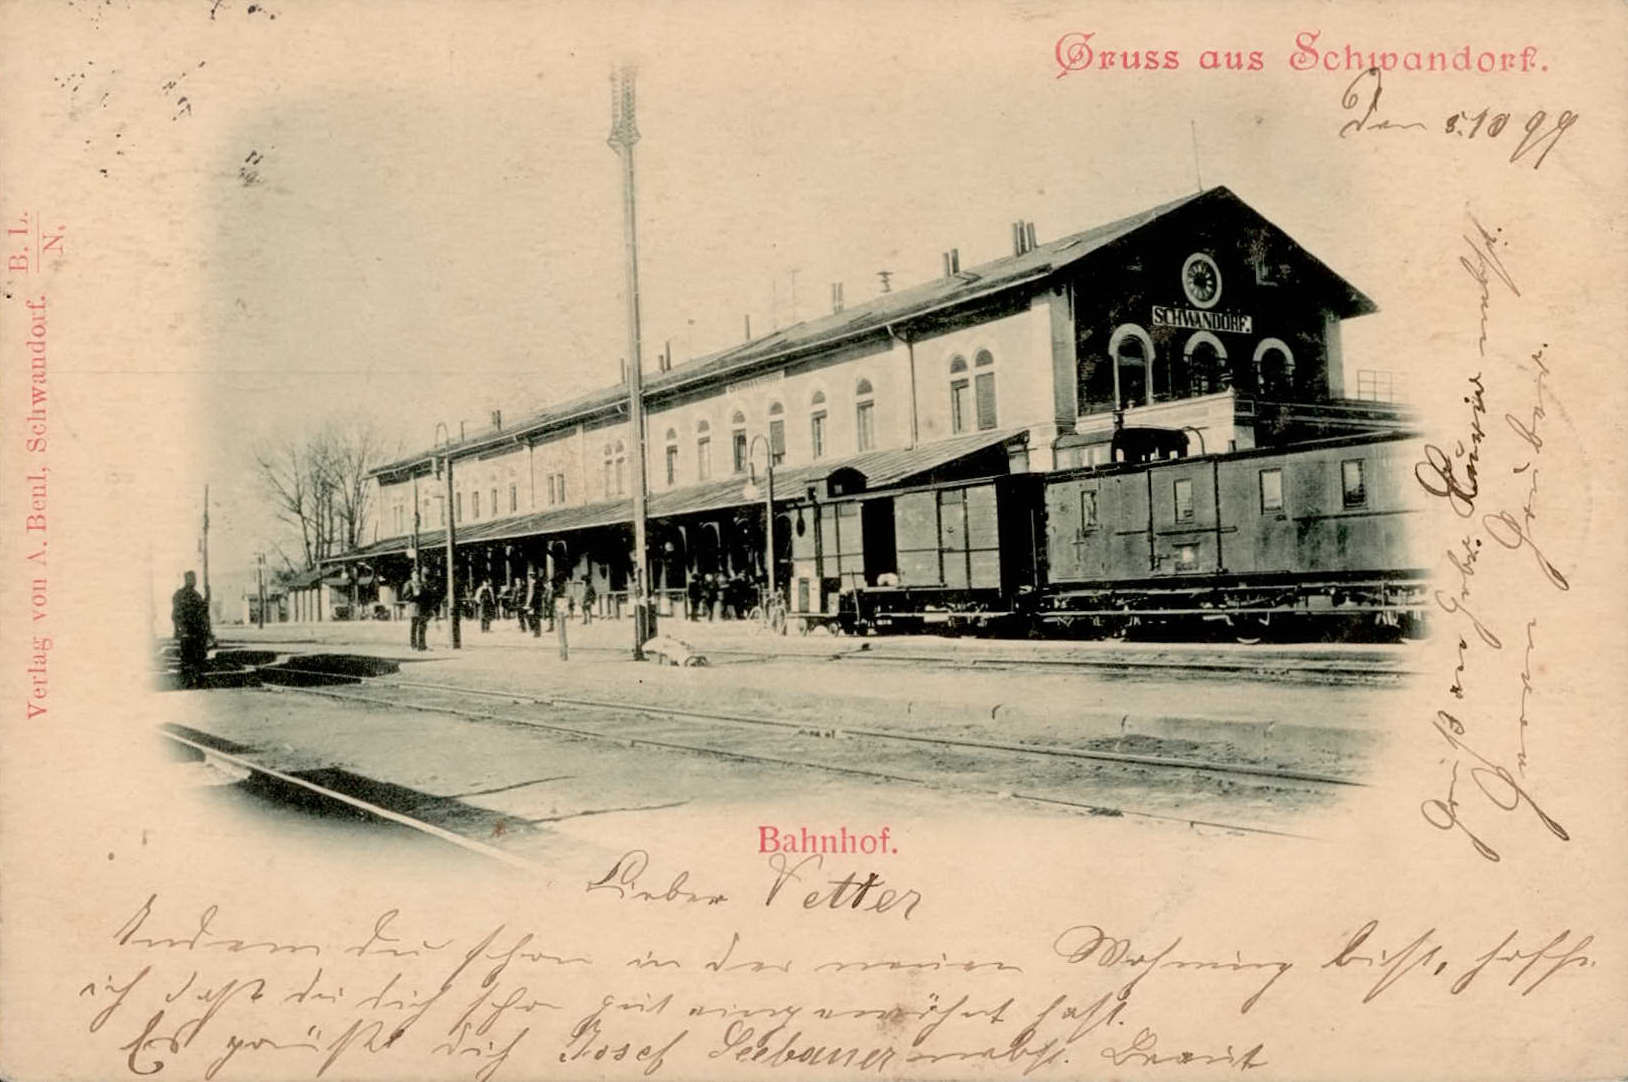 Gruss aus Schwandorf.
Den 5.10 99
B. L.
N.
Verlag von A. Benl, Schwandorf.
SCHWANDORF.
Bahnhof.
Lieber Vetter
Indem du schon in der neuen Wohnung bist, hoffe
ich daß du dich schon gut eingewöhnt hast.
Es grüßt dich Josef Seebauer nebst Braut
Gruß an nebst